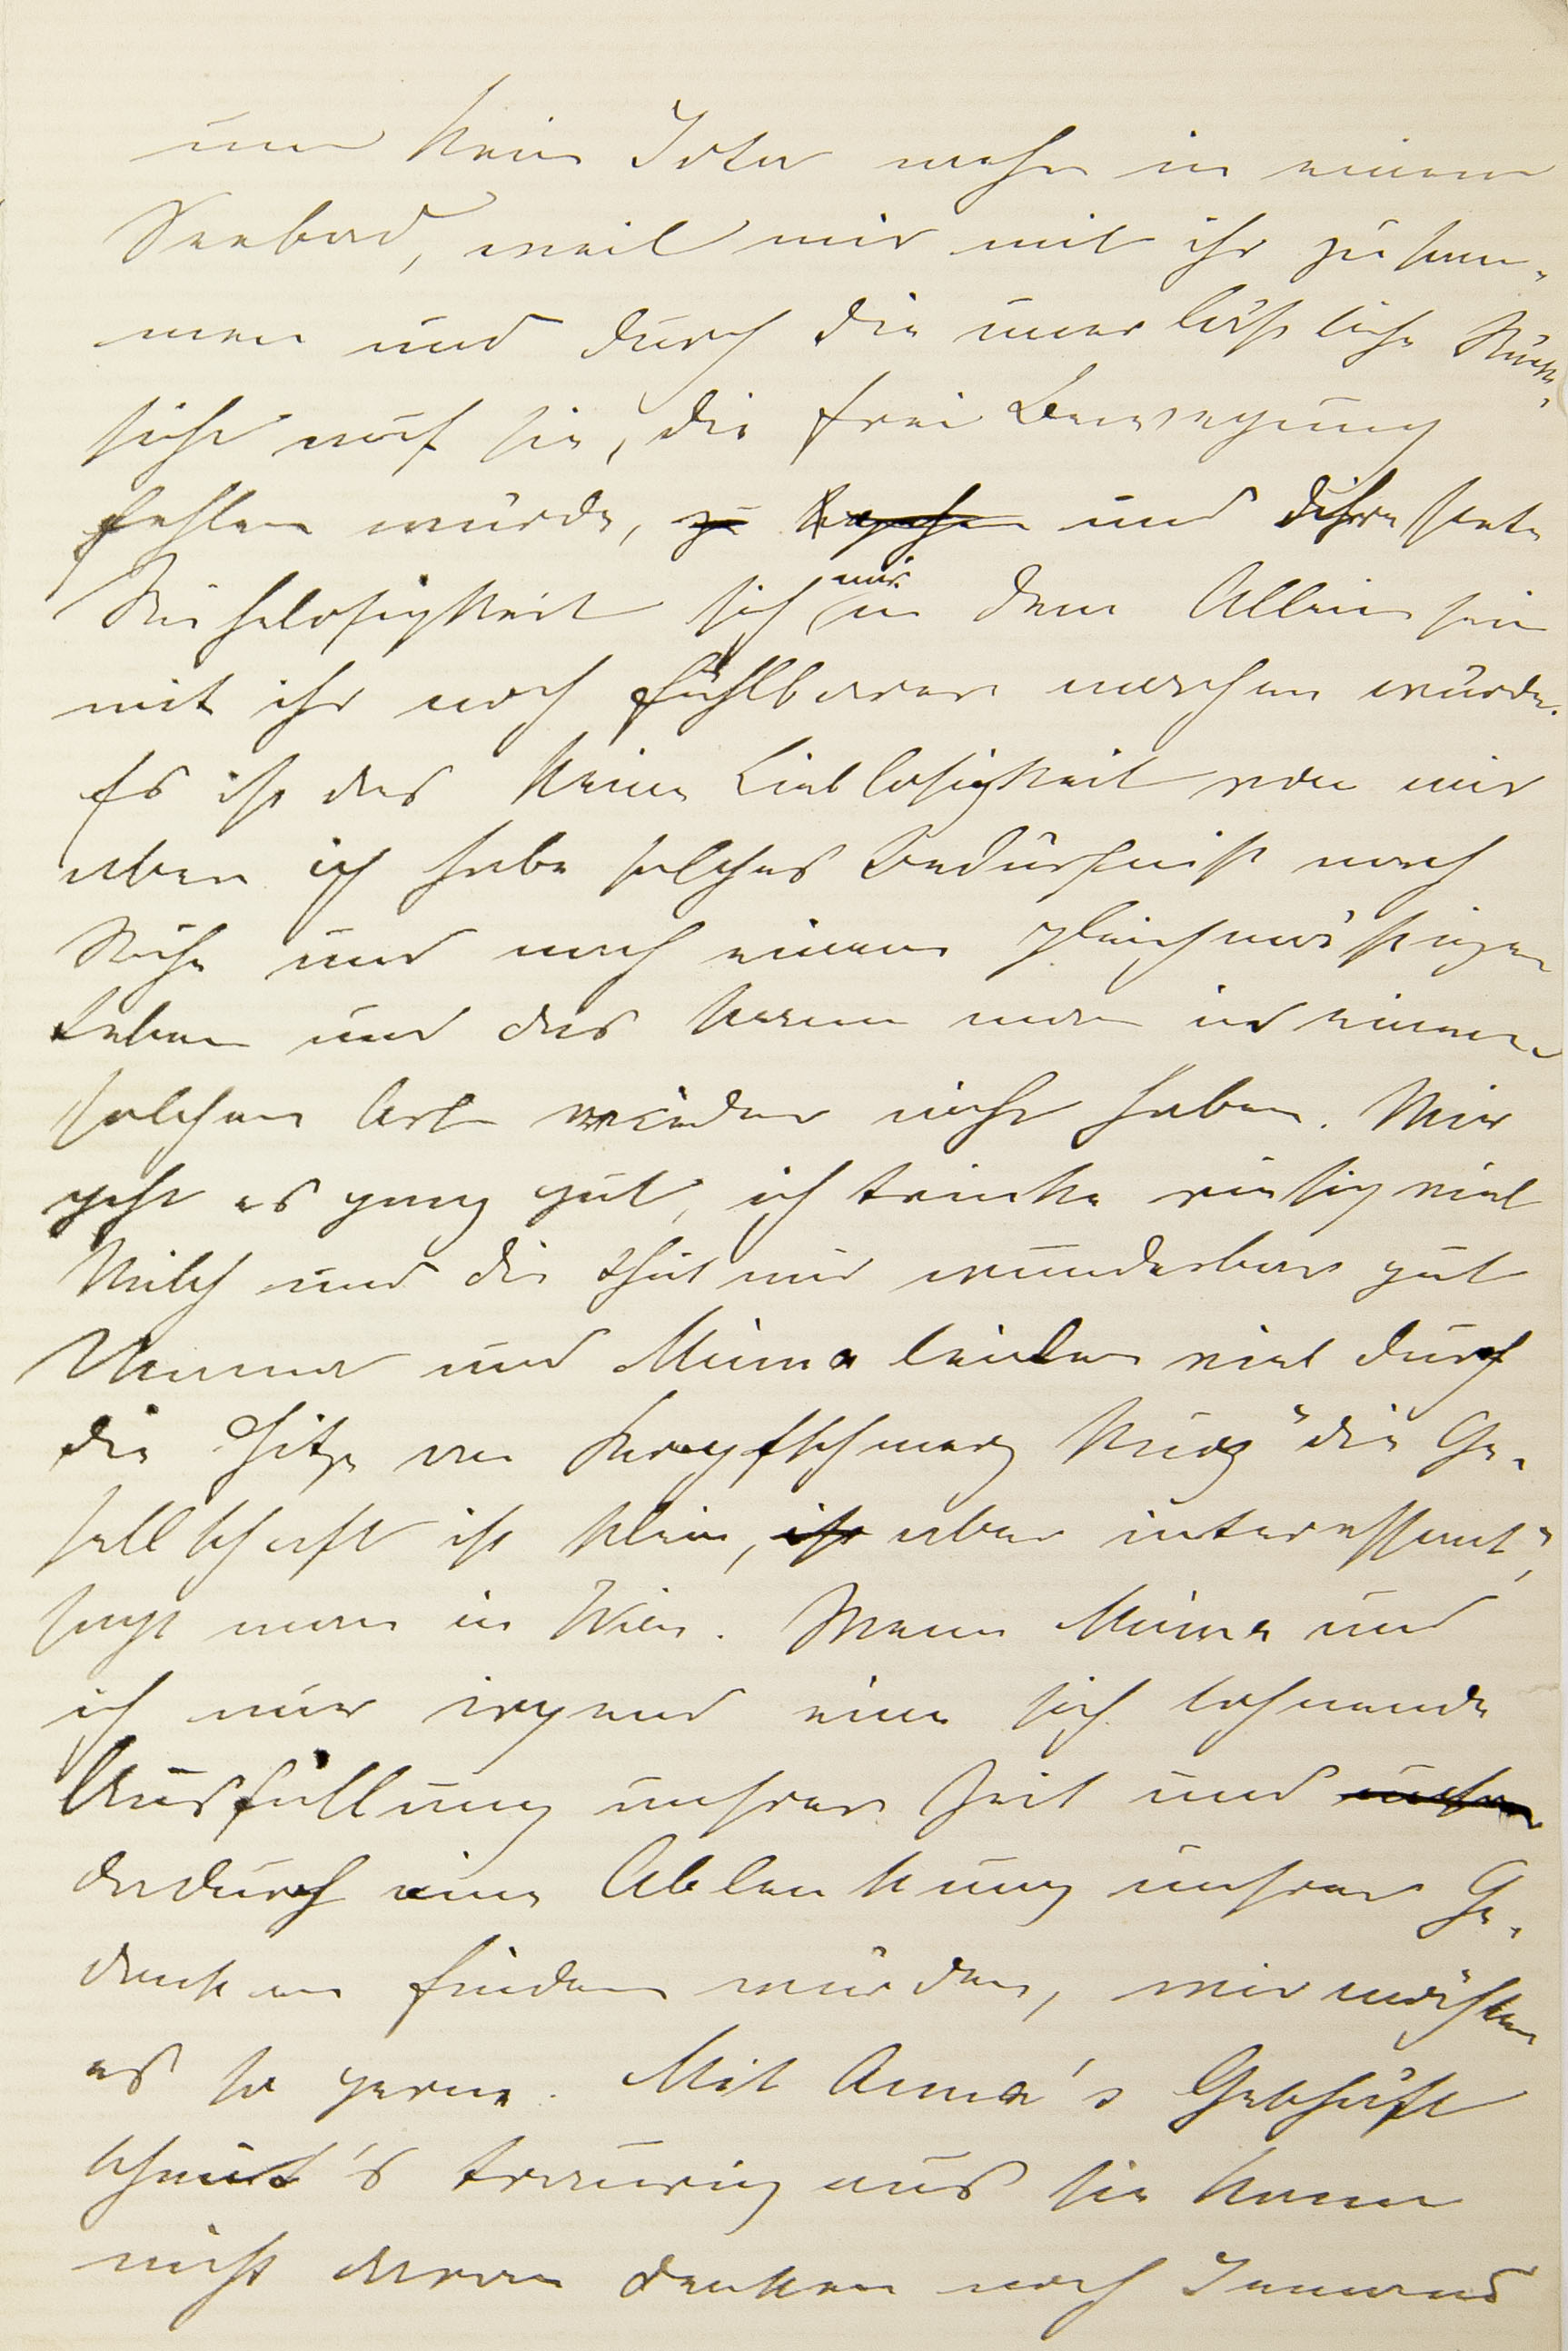 nun kein Idee mehr in einem
Seebad, weil mir mit ihr zusam-
men und durch die unerläßliche Rück-
sicht auf sie, die frei Bewegung
fehlen würde, zu und ihre
Ruhelosigkeit sich mir in dem Allein sein
mit ihr noch fühlbarer machen würde.
Es ist das keine Lieblosigkeit von mir
aber ich habe solches Bedürfniß nach
Ruhe und nach einem gleichmäßigen
Leben und das kann man in einem
solchen Ort wieder nicht haben. Mir
geht es ganz gut, ich trinke riesig viel
Milch und die thut mir wunderbar gut
Anna und Mima leiden viel durch
die Hitze an Kopfschmerz kurz "die Ge-
sellschaft ist klein, ist aber interessant",
sagt man in Wien. Wenn Mima und
ich nur irgend eine sich lohnende
Ausfüllung unsrer Zeit und unsrer
dadurch eine Ablenkung unsrer Ge-
danken finden würden, wir möchten
es so gerne. Mit Anna's Geschäft
schaut's traurig aus sie kann
nicht daran denken noch Jemand